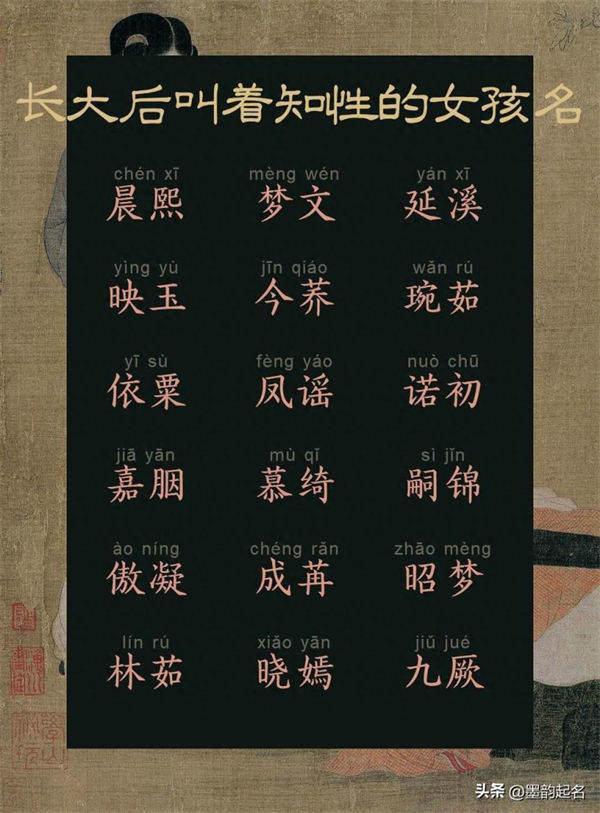 长大后叫着知性的女孩名
chén xī mèng wén yán xī
晨熙 梦文 延溪
yìng yù jīn qiáo wǎn rú
映玉 今荞 琬茹
yī sù fèng yáo nuò chū
依粟 凤谣 诺初
jiā yān mù qǐ sì jǐn
嘉胭 慕绮 嗣锦
ào níng chéng rǎn zhāo mèng
傲凝 成苒 昭梦
lín rú xiǎo yān jiǔ jué
林茹 晓嫣 九厥
头条 @墨韵起名